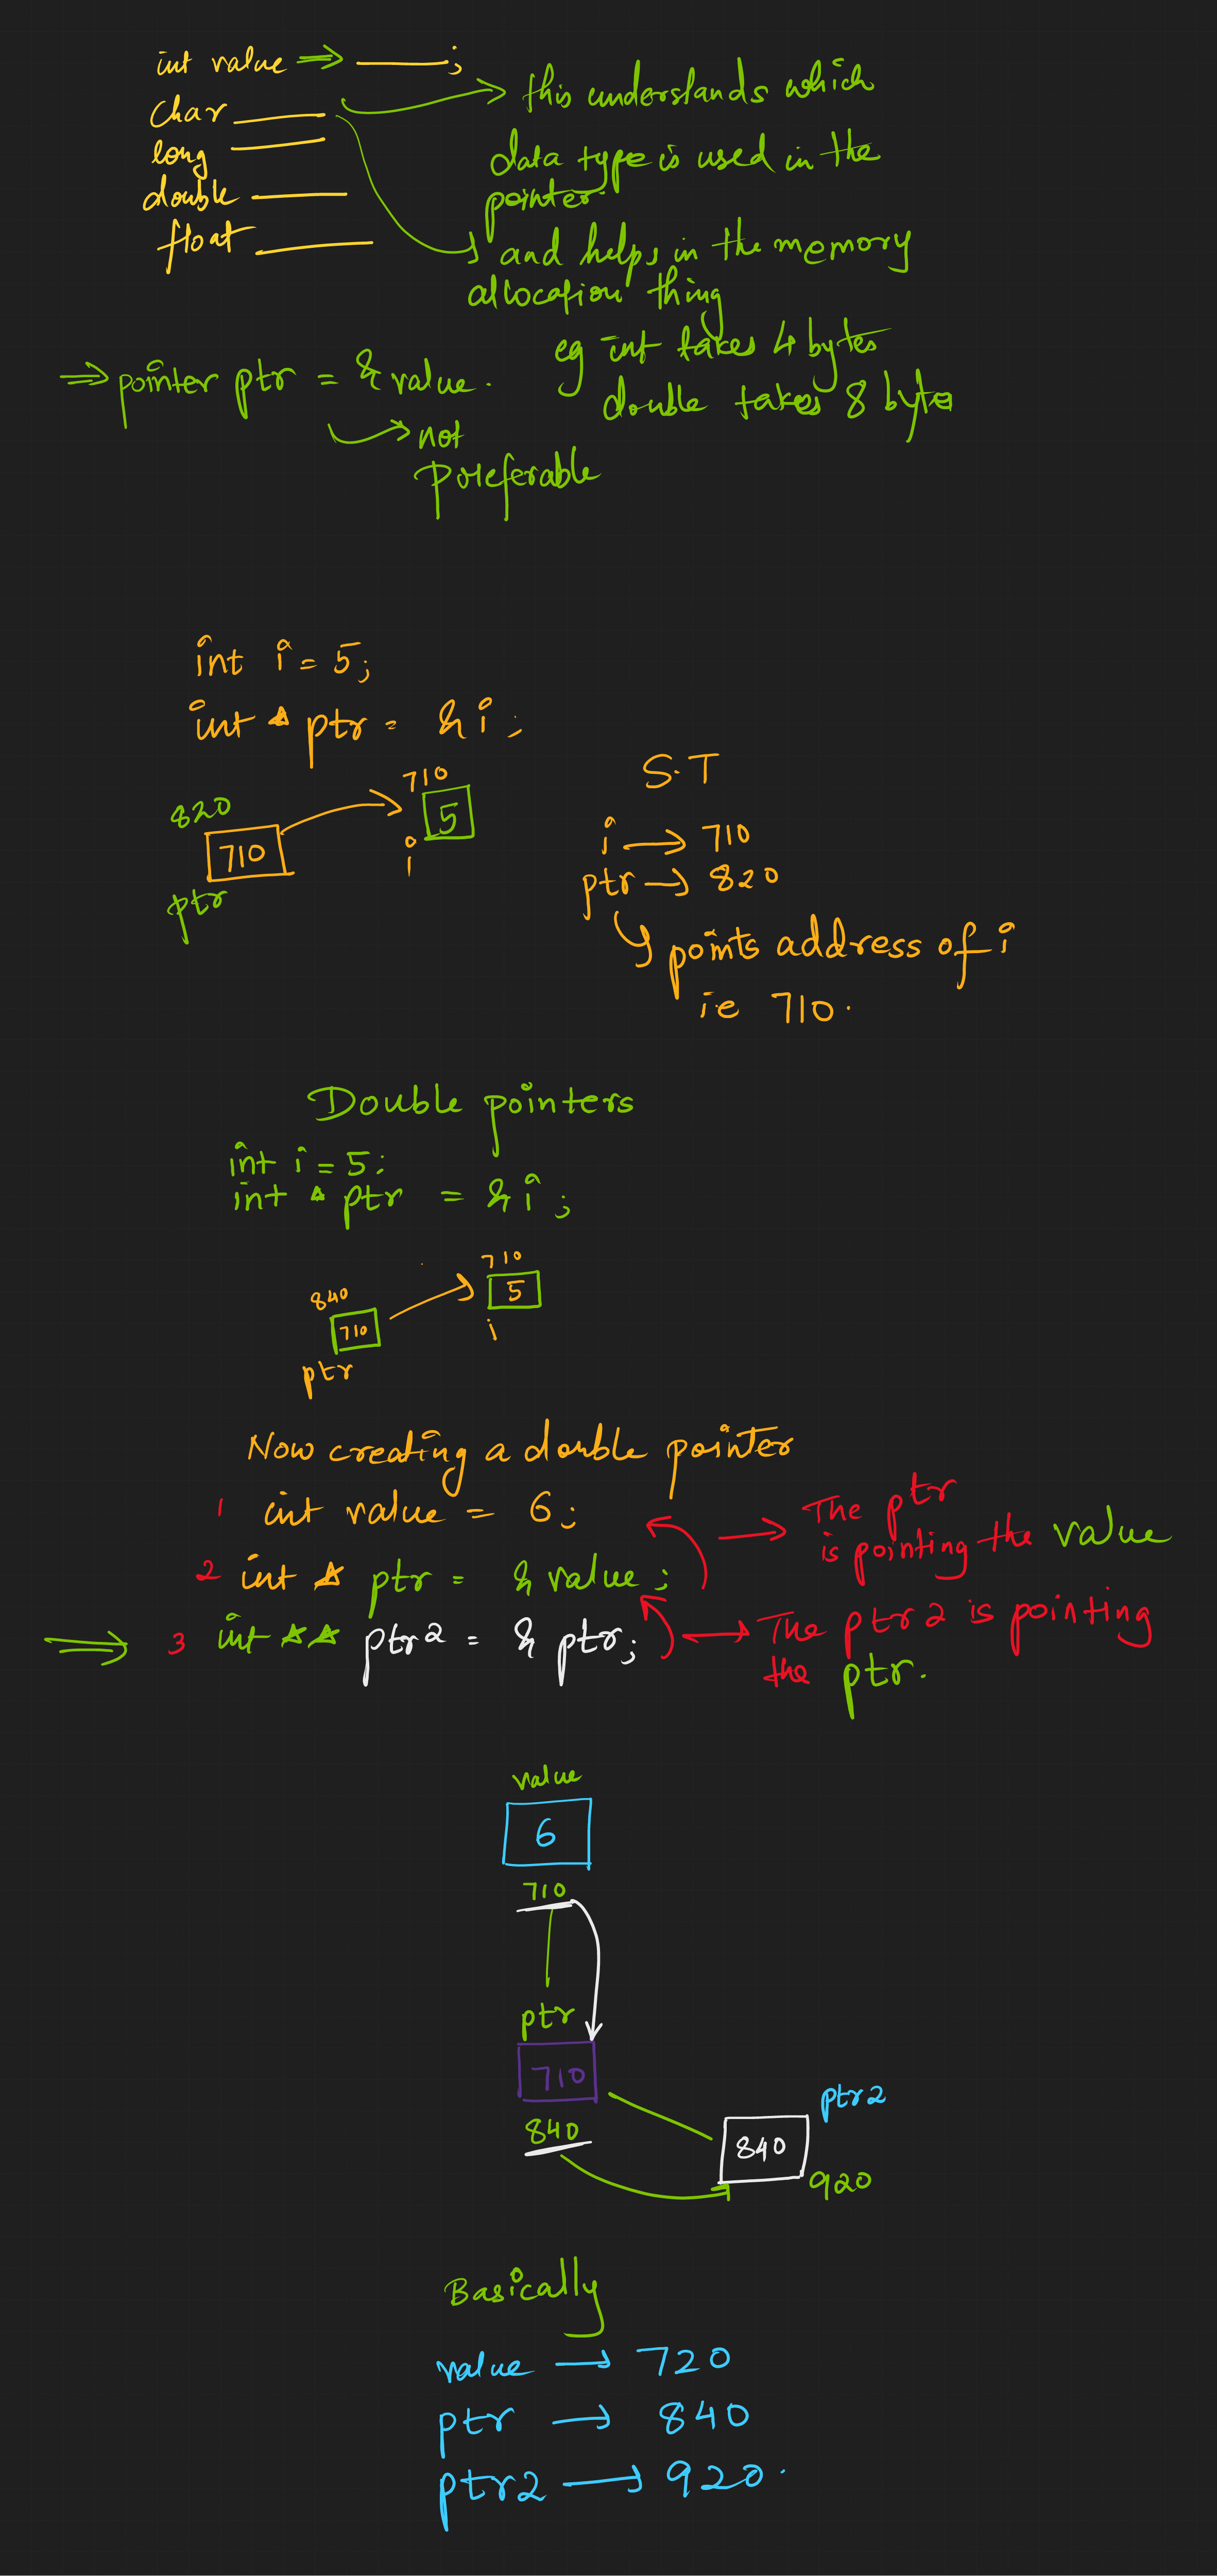 int value ⇒ ______;
char ______
long ______
double ______
float ______
→ this understands which
data type is used in the
pointer.
→ and helps in the memory
allocation thing
eg int takes 4 bytes
double takes 8 byte
⇒ pointer ptr = & value.
→ not
Preferable
int i = 5;
int * ptr = & i;
820
710
ptr
710
5
i
S.T
i → 710
ptr → 820
points address of i
ie 710.
Double pointers
int i = 5;
int * ptr = & i;
840
710
ptr
710
5
i
Now creating a double pointer
1 int value = 6;
→ The ptr
is pointing the value
2 int * ptr = & value;
⇒ 3 int ** ptr2 = & ptr;
→ The ptr2 is pointing
the ptr.
value
6
710
ptr
710
840
ptr2
840
920
Basically
value → 720
ptr → 840
ptr2 → 920.